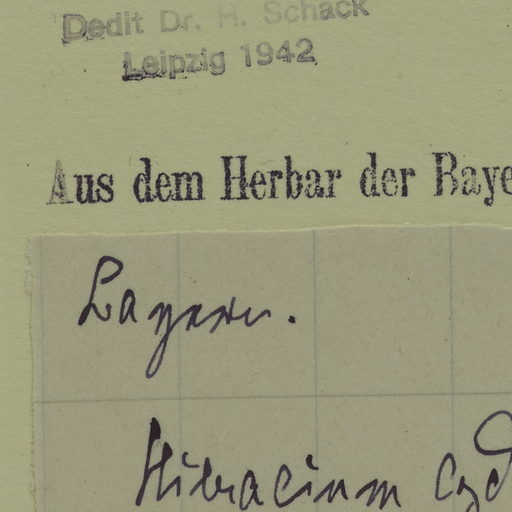 Dedit Dr. H. Schack
Leipzig 1942
Aus dem Herbar der Baye
Bayern.
Hieracium cyd